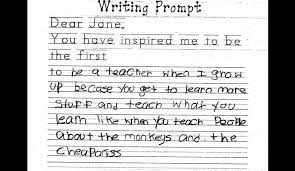 Writing Prompt
Dear Jane,
You have inspired me to be
the first
to be a teacher when I grow
up becase you get to learn more
Stuff and teach what you
learn like when you teach People
about the monkeys and the
cheaPariss